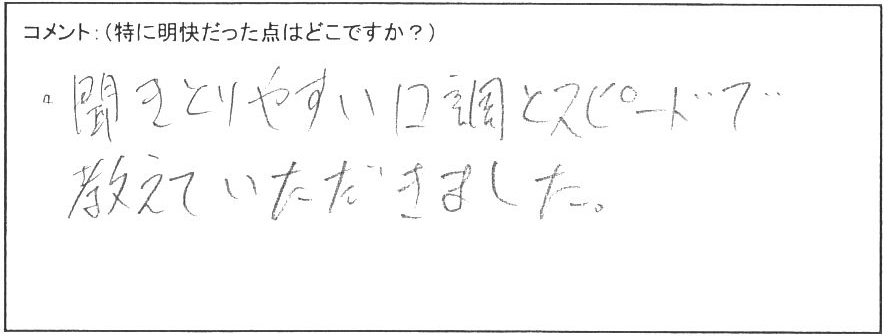 コメント:(特に明快だった点はどこですか?)
・聞きとりやすい口調とスピードで
教えていただきました。